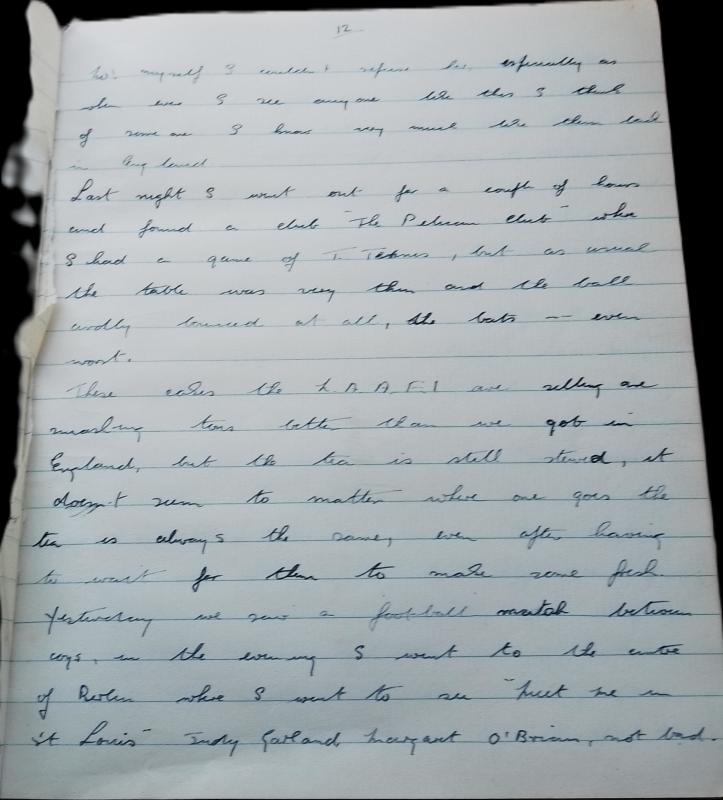 12
to: myself I couldn't refuse her, especially as
when ever I see anyone like this I think
of some one I know very much like them back
in England
Last night I went out for a couple of hours
and found a club "The Pelican Club" where
I had a game of T. Tennis, but as usual
the table was very thin and the ball
hardly bounced at all, the bats -- even
worst.
These cakes the N.A.A.F.I are selling are
smashing tons better than we got in
England, but the tea is still stewed, it
doesn't seem to matter where one goes the
tea is always the same, even after having
to wait for them to make some fresh.
Yesterday we saw a football match between
coys, in the evening I went to the centre
of Berlin where I went to see "Meet me in
St Louis" Judy Garland Margaret O'Brian, not bad.